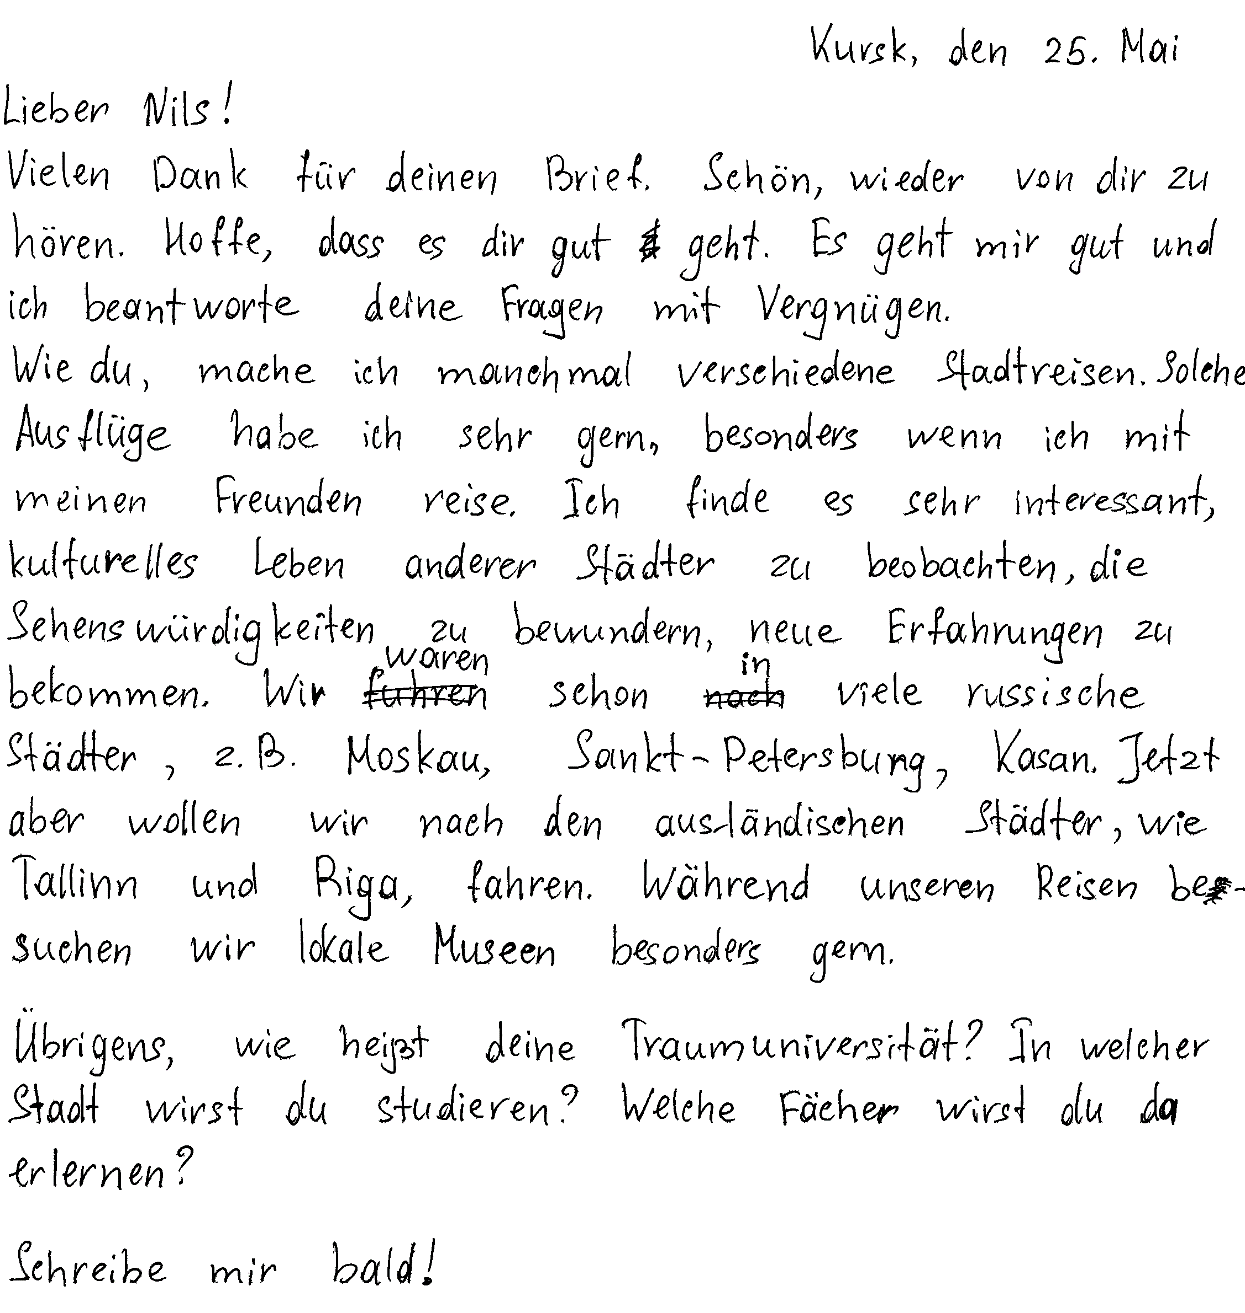 Kursk, den 25. Mai
Lieber Nils!
Vielen Dank für deinen Brief. Schön, wieder von dir zu
hören. Hoffe, dass es dir gut geht. Es geht mir gut und
ich beantworte deine Fragen mit Vergnügen.
Wie du, mache ich manchmal verschiedene Stadtreisen. Solche
Ausflüge habe ich sehr gern, besonders wenn ich mit
meinen Freunden reise. Ich finde es sehr interessant,
kulturelles Leben anderer Städter zu beobachten, die
Sehenswürdigkeiten zu bewundern, neue Erfahrungen zu
waren in
bekommen. Wir fuhren schon nach viele russische
Städter, z.B. Moskau, Sankt-Petersburg, Kasan. Jetzt
aber wollen wir nach den ausländischen Städter, wie
Tallinn und Riga, fahren. Während unseren Reisen be-
suchen wir lokale Museen besonders gern.
Übrigens, wie heißt deine Traumuniversität? In welcher
Stadt wirst du studieren? Welche Fächer wirst du da
erlernen?
Schreibe mir bald!